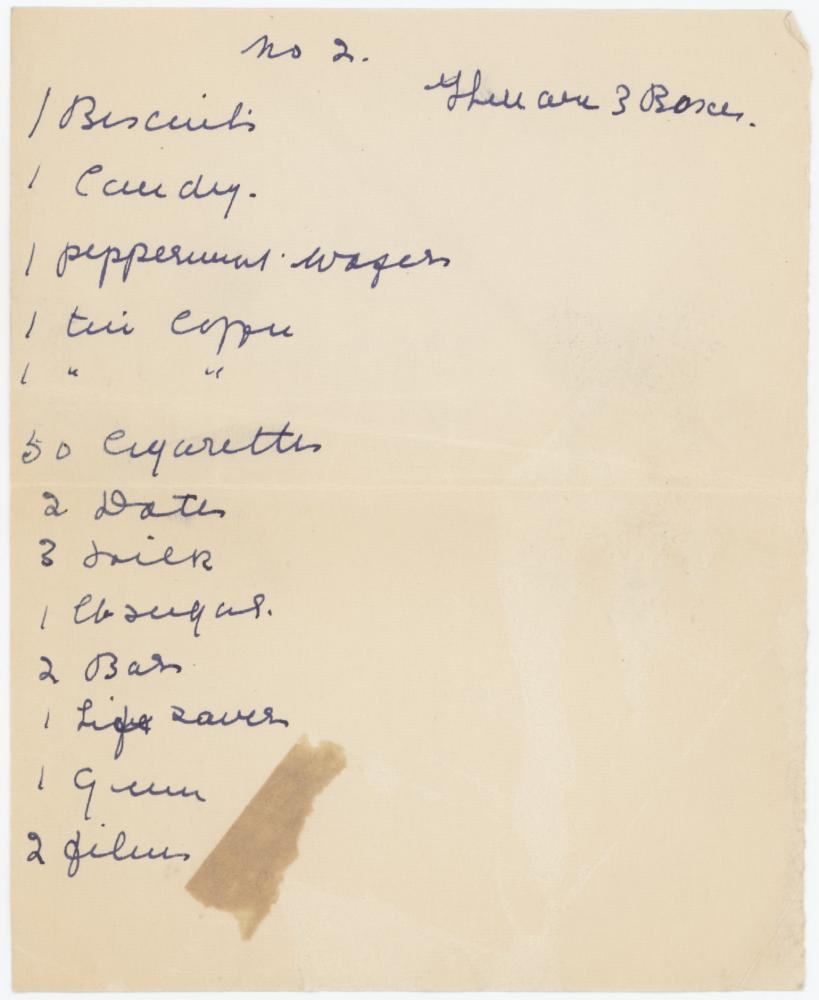 No 2.
There are 3 Boxes.
1 Biscuits
1 Candy.
1 peppermint wafers
1 tin Coffee
1 " "
50 Cigarettes
2 Dates
3 milk
1 lb sugar.
2 Bars
1 Life saver
1 Gum
2 films